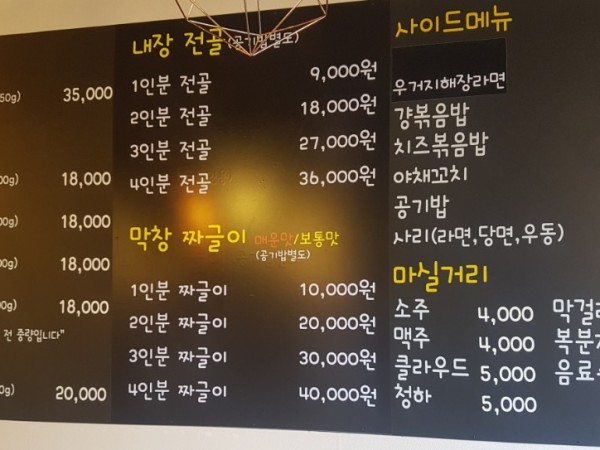 50g) 35,000
00g) 18,000
00g) 18,000
00g) 18,000
00g) 18,000
전 중량입니다"
0g) 20,000
내장 전골 (공기밥별도)
1인분 전골 9,000원
2인분 전골 18,000원
3인분 전골 27,000원
4인분 전골 36,000원
막창 짜글이 매운맛/보통맛
(공기밥별도)
1인분 짜글이 10,000원
2인분 짜글이 20,000원
3인분 짜글이 30,000원
4인분 짜글이 40,000원
사이드메뉴
우거지해장라면
걍볶음밥
치즈볶음밥
야채꼬치
공기밥
사리(라면,당면,우동)
마실거리
소주 4,000 막걸
맥주 4,000 복분
클라우드 5,000 음료
청하 5,000